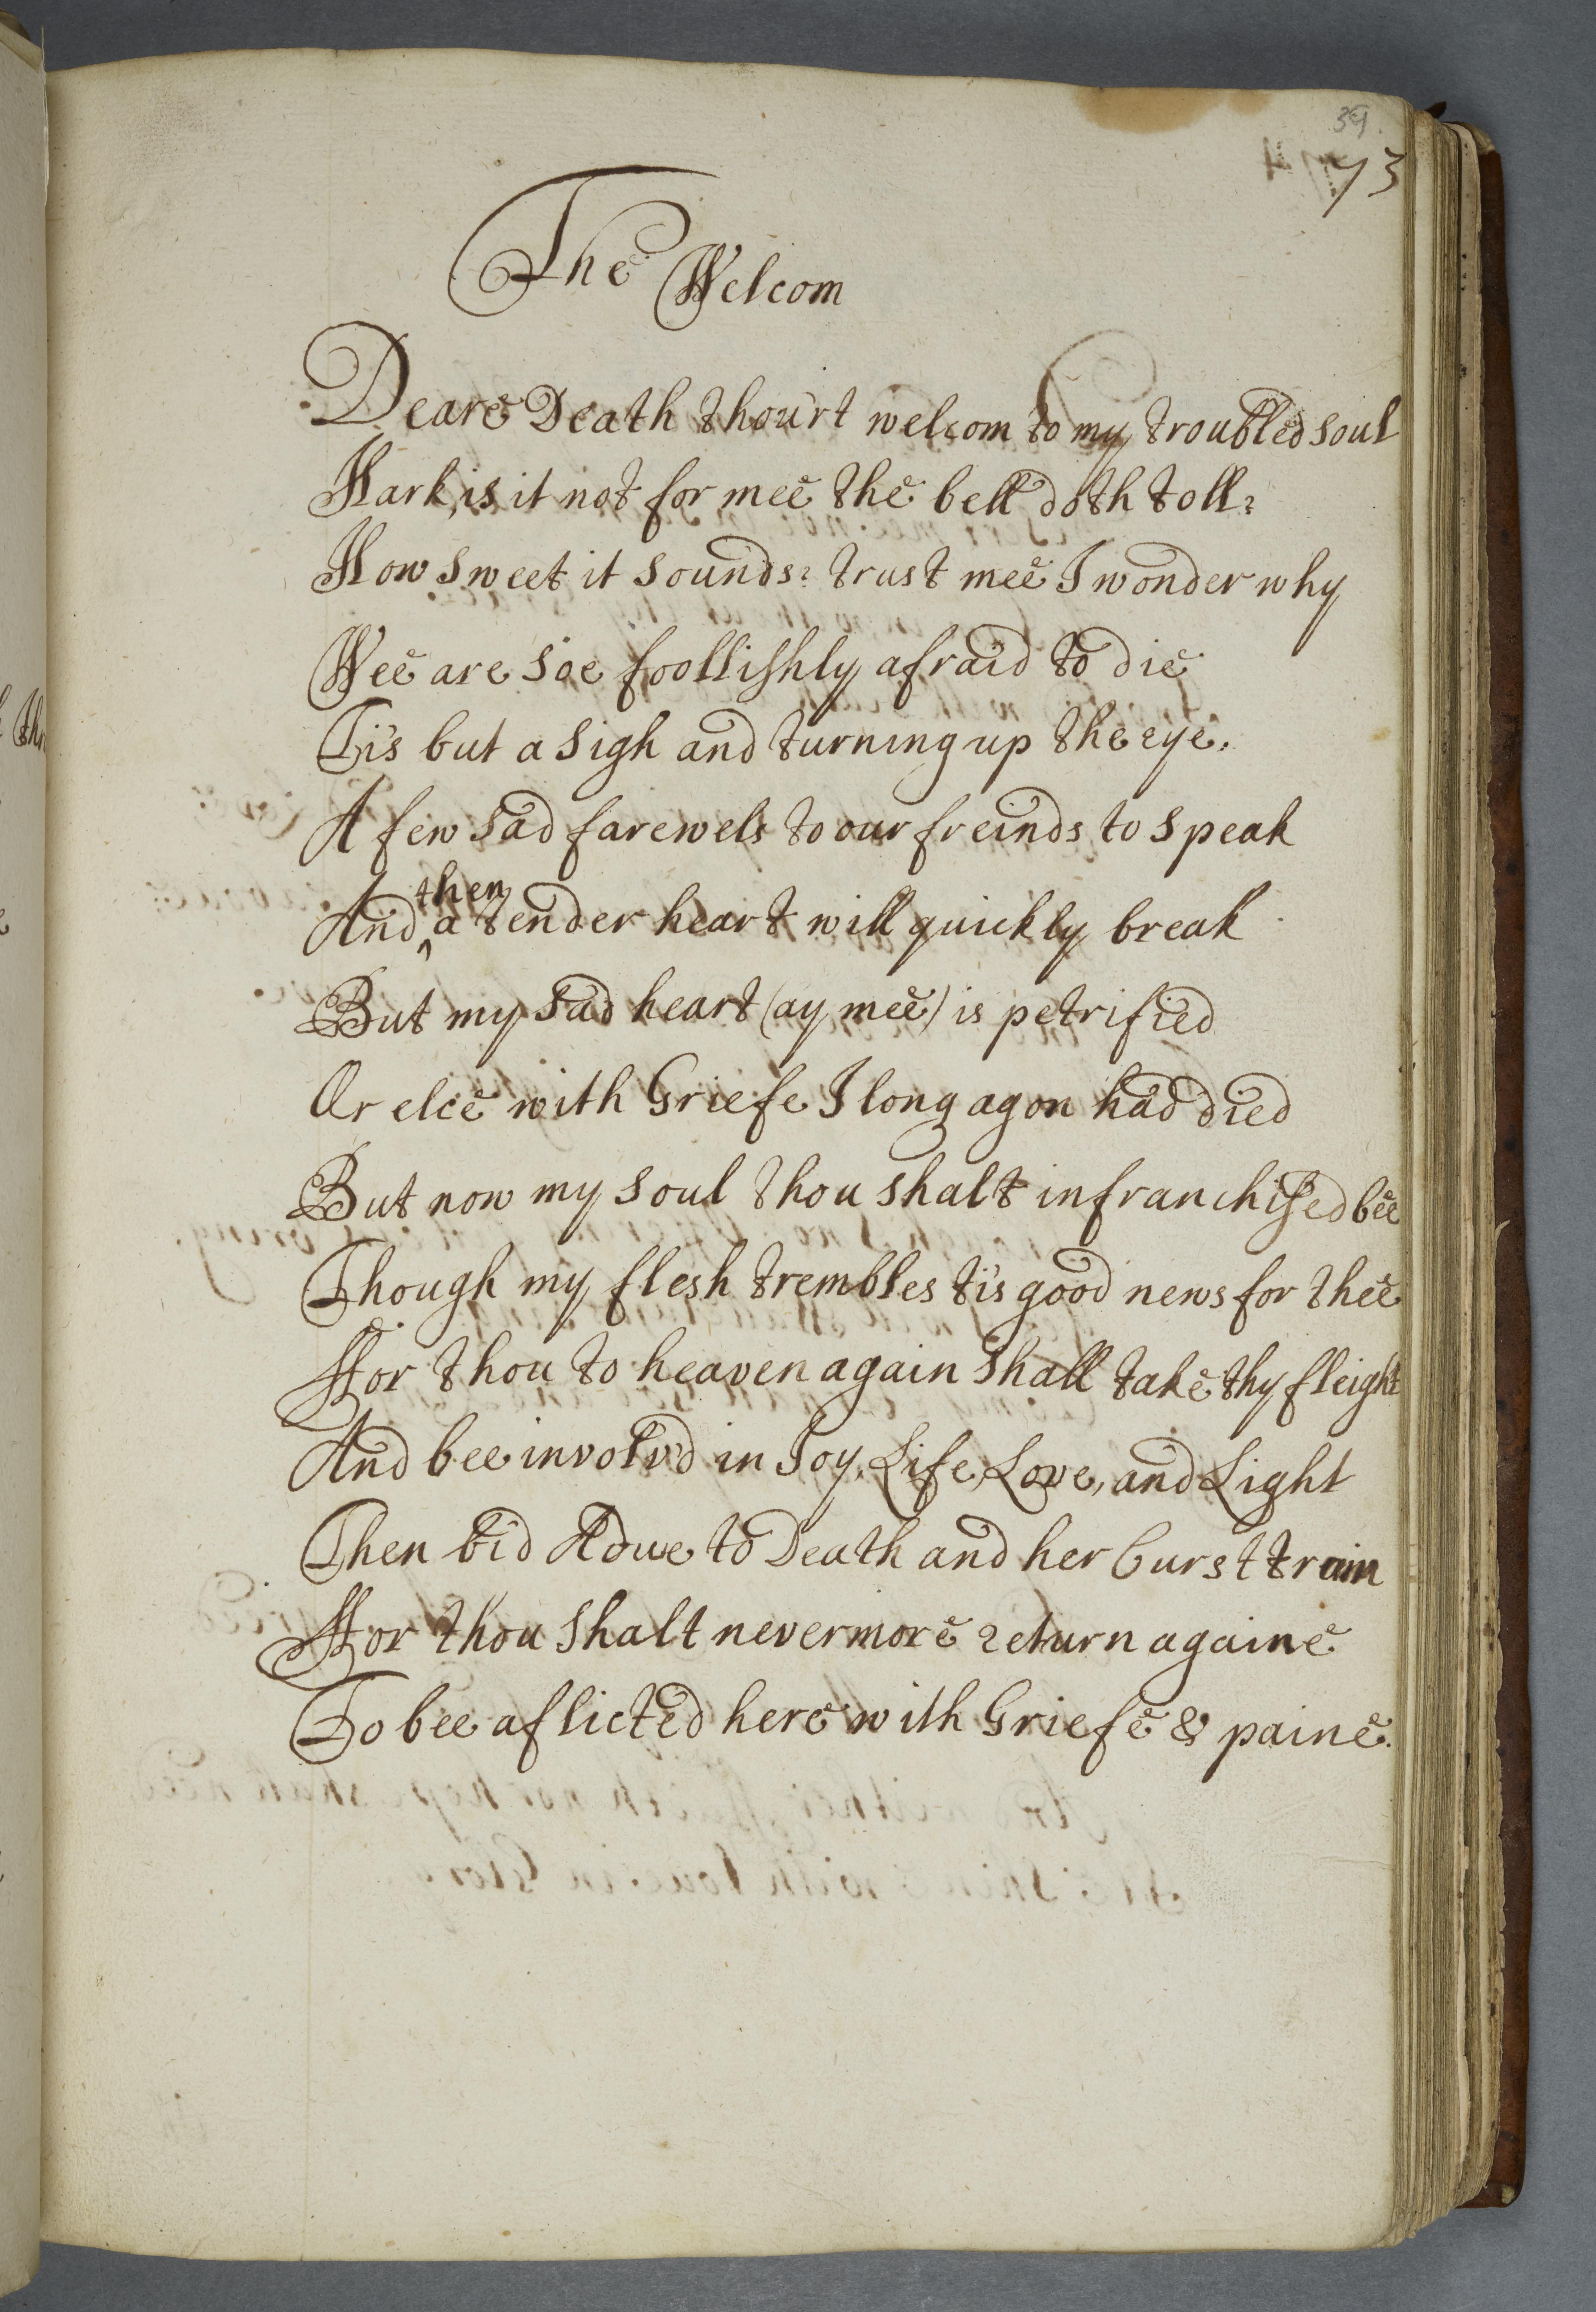 39.
73
The Welcom
Deare Death thou'rt welcom to my troubled soul
Hark, is it not for mee the bell doth toll?
How sweet it sounds? trust mee I wonder why
Wee are soe foollishly afraid to die
Tis but a sigh and turning up the eye,
A few sad farewels to our freinds to speak
And ^then a tender heart will quickly break
But my sad heart (ay mee) is petrified
Or elce with Griefe I long agon had died
But now my soul thou shalt infranchised bee
Though my flesh trembles ti's good news for thee
Ffor thou to heaven again shall take thy fleight
And bee involv'd in Joy, Life, Love, and Light
Then bid Adue to Death and her Curst train
Ffor thou shalt nevermore return againe
To bee aflicted here with Griefe & paine.